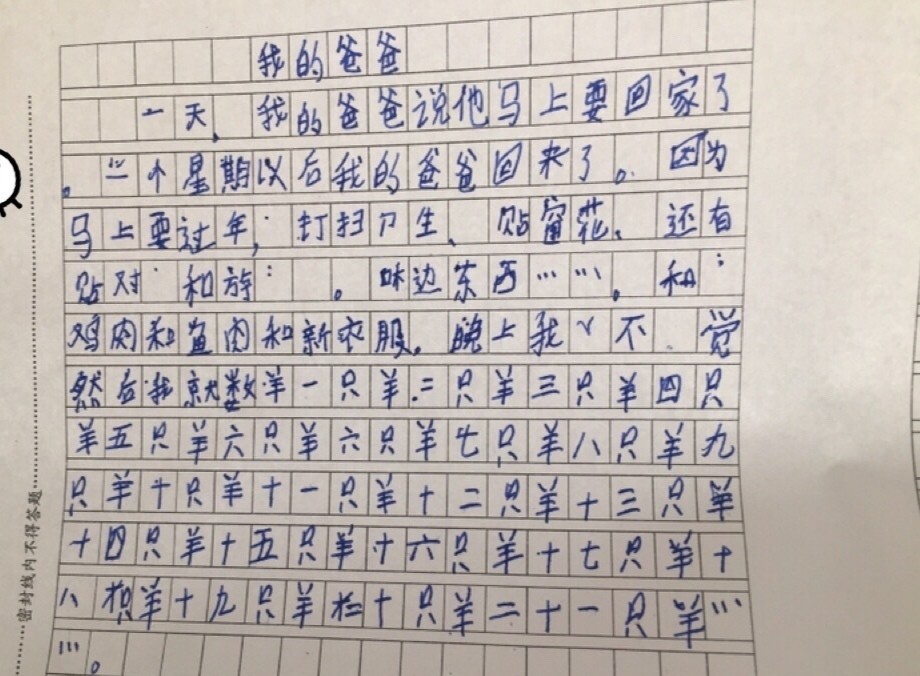 我的爸爸
一天,我的爸爸说他马上要回家了
。一个星期以后我的爸爸回来了。因为
马上要过年,打扫卫生、贴窗花、还有
贴对 和放 。 边东西……。和
鸡肉和鱼肉和新衣服。晚上我 不 觉
然后我就数羊一只羊二只羊三只羊四只
羊五只羊六只羊六只羊七只羊八只羊九
只羊十只羊十一只羊十二只羊十三只羊
十四只羊十五只羊十六只羊十七只羊十
八只羊十九只羊二十只羊二十一只羊…
…。
密封线内不得答题